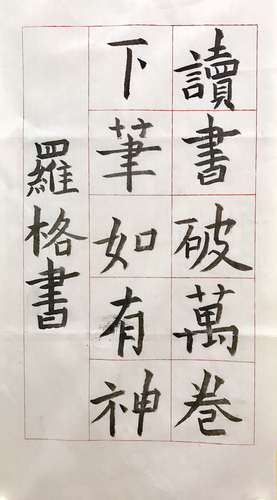 讀書破萬卷
下筆如有神
羅格書